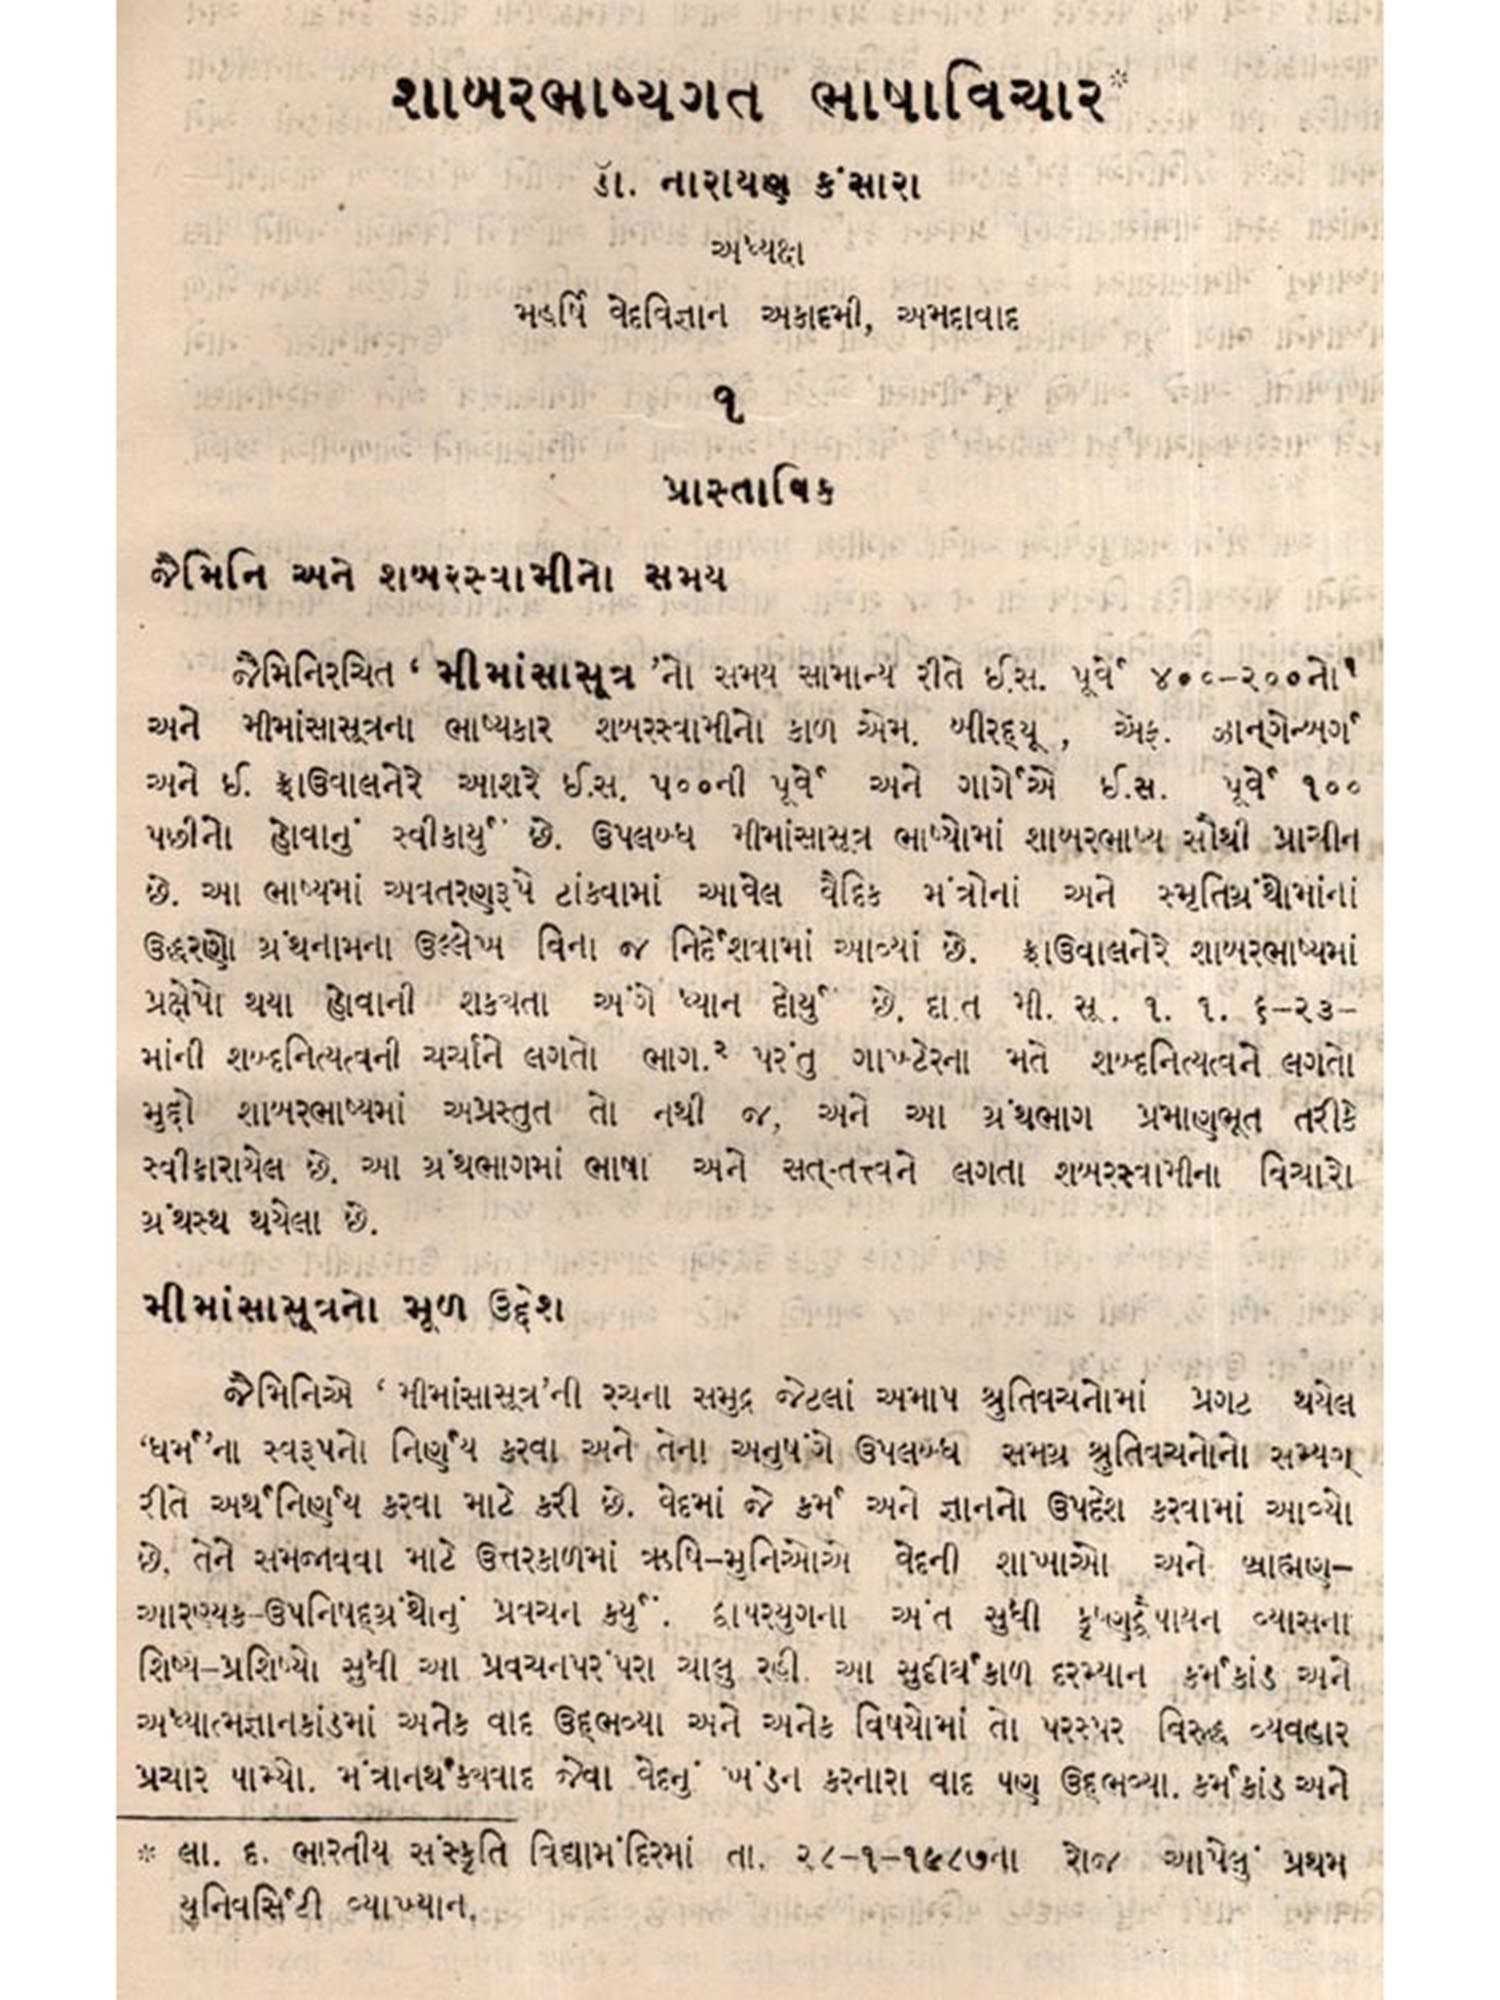 શાબરભાષ્યગત ભાષાવિચાર*
ડૉ. નારાયણ કંસારા
અધ્યક્ષ
મહર્ષિ વેદવિજ્ઞાન અકાદમી, અમદાવાદ
૧
પ્રાસ્તાવિક
જૈમિનિ અને શબરસ્વામીનો સમય
જૈમિનિરચિત ‘મીમાંસાસૂત્ર’નો સમય સામાન્ય રીતે ઈ.સ. પૂર્વે ૪૦૦-૨૦૦નો૧
અને મીમાંસાસૂત્રના ભાષ્યકાર શબરસ્વામીનો કાળ એમ. બીરદ્યૂ, એફ. ઝાન્ગેન્બર્ગ
અને ઈ. ફ્રાઉવાલનેરે આશરે ઈ.સ. ૫૦૦ની પૂર્વે અને ગાર્ગેએ ઈ.સ. પૂર્વે ૧૦૦
પછીનો હોવાનું સ્વીકાર્યું છે. ઉપલબ્ધ મીમાંસાસૂત્ર ભાષ્યોમાં શાબરભાષ્ય સૌથી પ્રાચીન
છે. આ ભાષ્યમાં અવતરણરૂપે ટાંકવામાં આવેલ વૈદિક મંત્રોનાં અને સ્મૃતિગ્રંથોમાંનાં
ઉદ્ધરણો ગ્રંથનામના ઉલ્લેખ વિના જ નિર્દેશવામાં આવ્યાં છે. ફ્રાઉવાલનેરે શાબરભાષ્યમાં
પ્રક્ષેપો થયા હોવાની શક્યતા અંગે ધ્યાન દોર્યું છે. દા.ત મી. સૂ. ૧. ૧. ૬-૨૩-
માંની શબ્દનિત્યત્વની ચર્ચાને લગતો ભાગ.૨ પરંતુ ગાખ્ટેરના મતે શબ્દનિત્યત્વને લગતો
મુદ્દો શાબરભાષ્યમાં અપ્રસ્તુત તો નથી જ, અને આ ગ્રંથભાગ પ્રમાણભૂત તરીકે
સ્વીકારાયેલ છે. આ ગ્રંથભાગમાં ભાષા અને સત્-તત્ત્વને લગતા શબરસ્વામીના વિચારો
ગ્રંથસ્થ થયેલા છે.
મીમાંસાસૂત્રનો મૂળ ઉદ્દેશ
જૈમિનિએ ‘મીમાંસાસૂત્ર’ની રચના સમુદ્ર જેટલાં અમાપ શ્રુતિવચનોમાં પ્રગટ થયેલ
‘ધર્મ’ના સ્વરૂપનો નિર્ણય કરવા અને તેના અનુષંગે ઉપલબ્ધ સમગ્ર શ્રુતિવચનોનો સમ્યગ્
રીતે અર્થનિર્ણય કરવા માટે કરી છે. વેદમાં જે કર્મ અને જ્ઞાનનો ઉપદેશ કરવામાં આવ્યો
છે, તેને સમજાવવા માટે ઉત્તરકાળમાં ઋષિ-મુનિઓએ વેદની શાખાઓ અને બ્રાહ્મણ-
આરણ્યક-ઉપનિષદ્ગ્રંથોનું પ્રવચન કર્યું. દ્વાપરયુગના અંત સુધી કૃષ્ણદ્વૈપાયન વ્યાસના
શિષ્ય-પ્રશિષ્યો સુધી આ પ્રવચનપરંપરા ચાલુ રહી. આ સુદીર્ઘકાળ દરમ્યાન કર્મકાંડ અને
અધ્યાત્મજ્ઞાનકાંડમાં અનેક વાદ ઉદ્ભવ્યા અને અનેક વિષયોમાં તો પરસ્પર વિરુદ્ધ વ્યવહાર
પ્રચાર પામ્યો. મંત્રાનર્થક્યવાદ જેવા વેદનું ખંડન કરનારા વાદ પણ ઉદ્ભવ્યા. કર્મકાંડ અને
* લા. દ. ભારતીય સંસ્કૃતિ વિદ્યામંદિરમાં તા. ૨૮-૧-૧૯૮૭ના રોજ આપેલું પ્રથમ
યુનિવર્સિટી વ્યાખ્યાન.